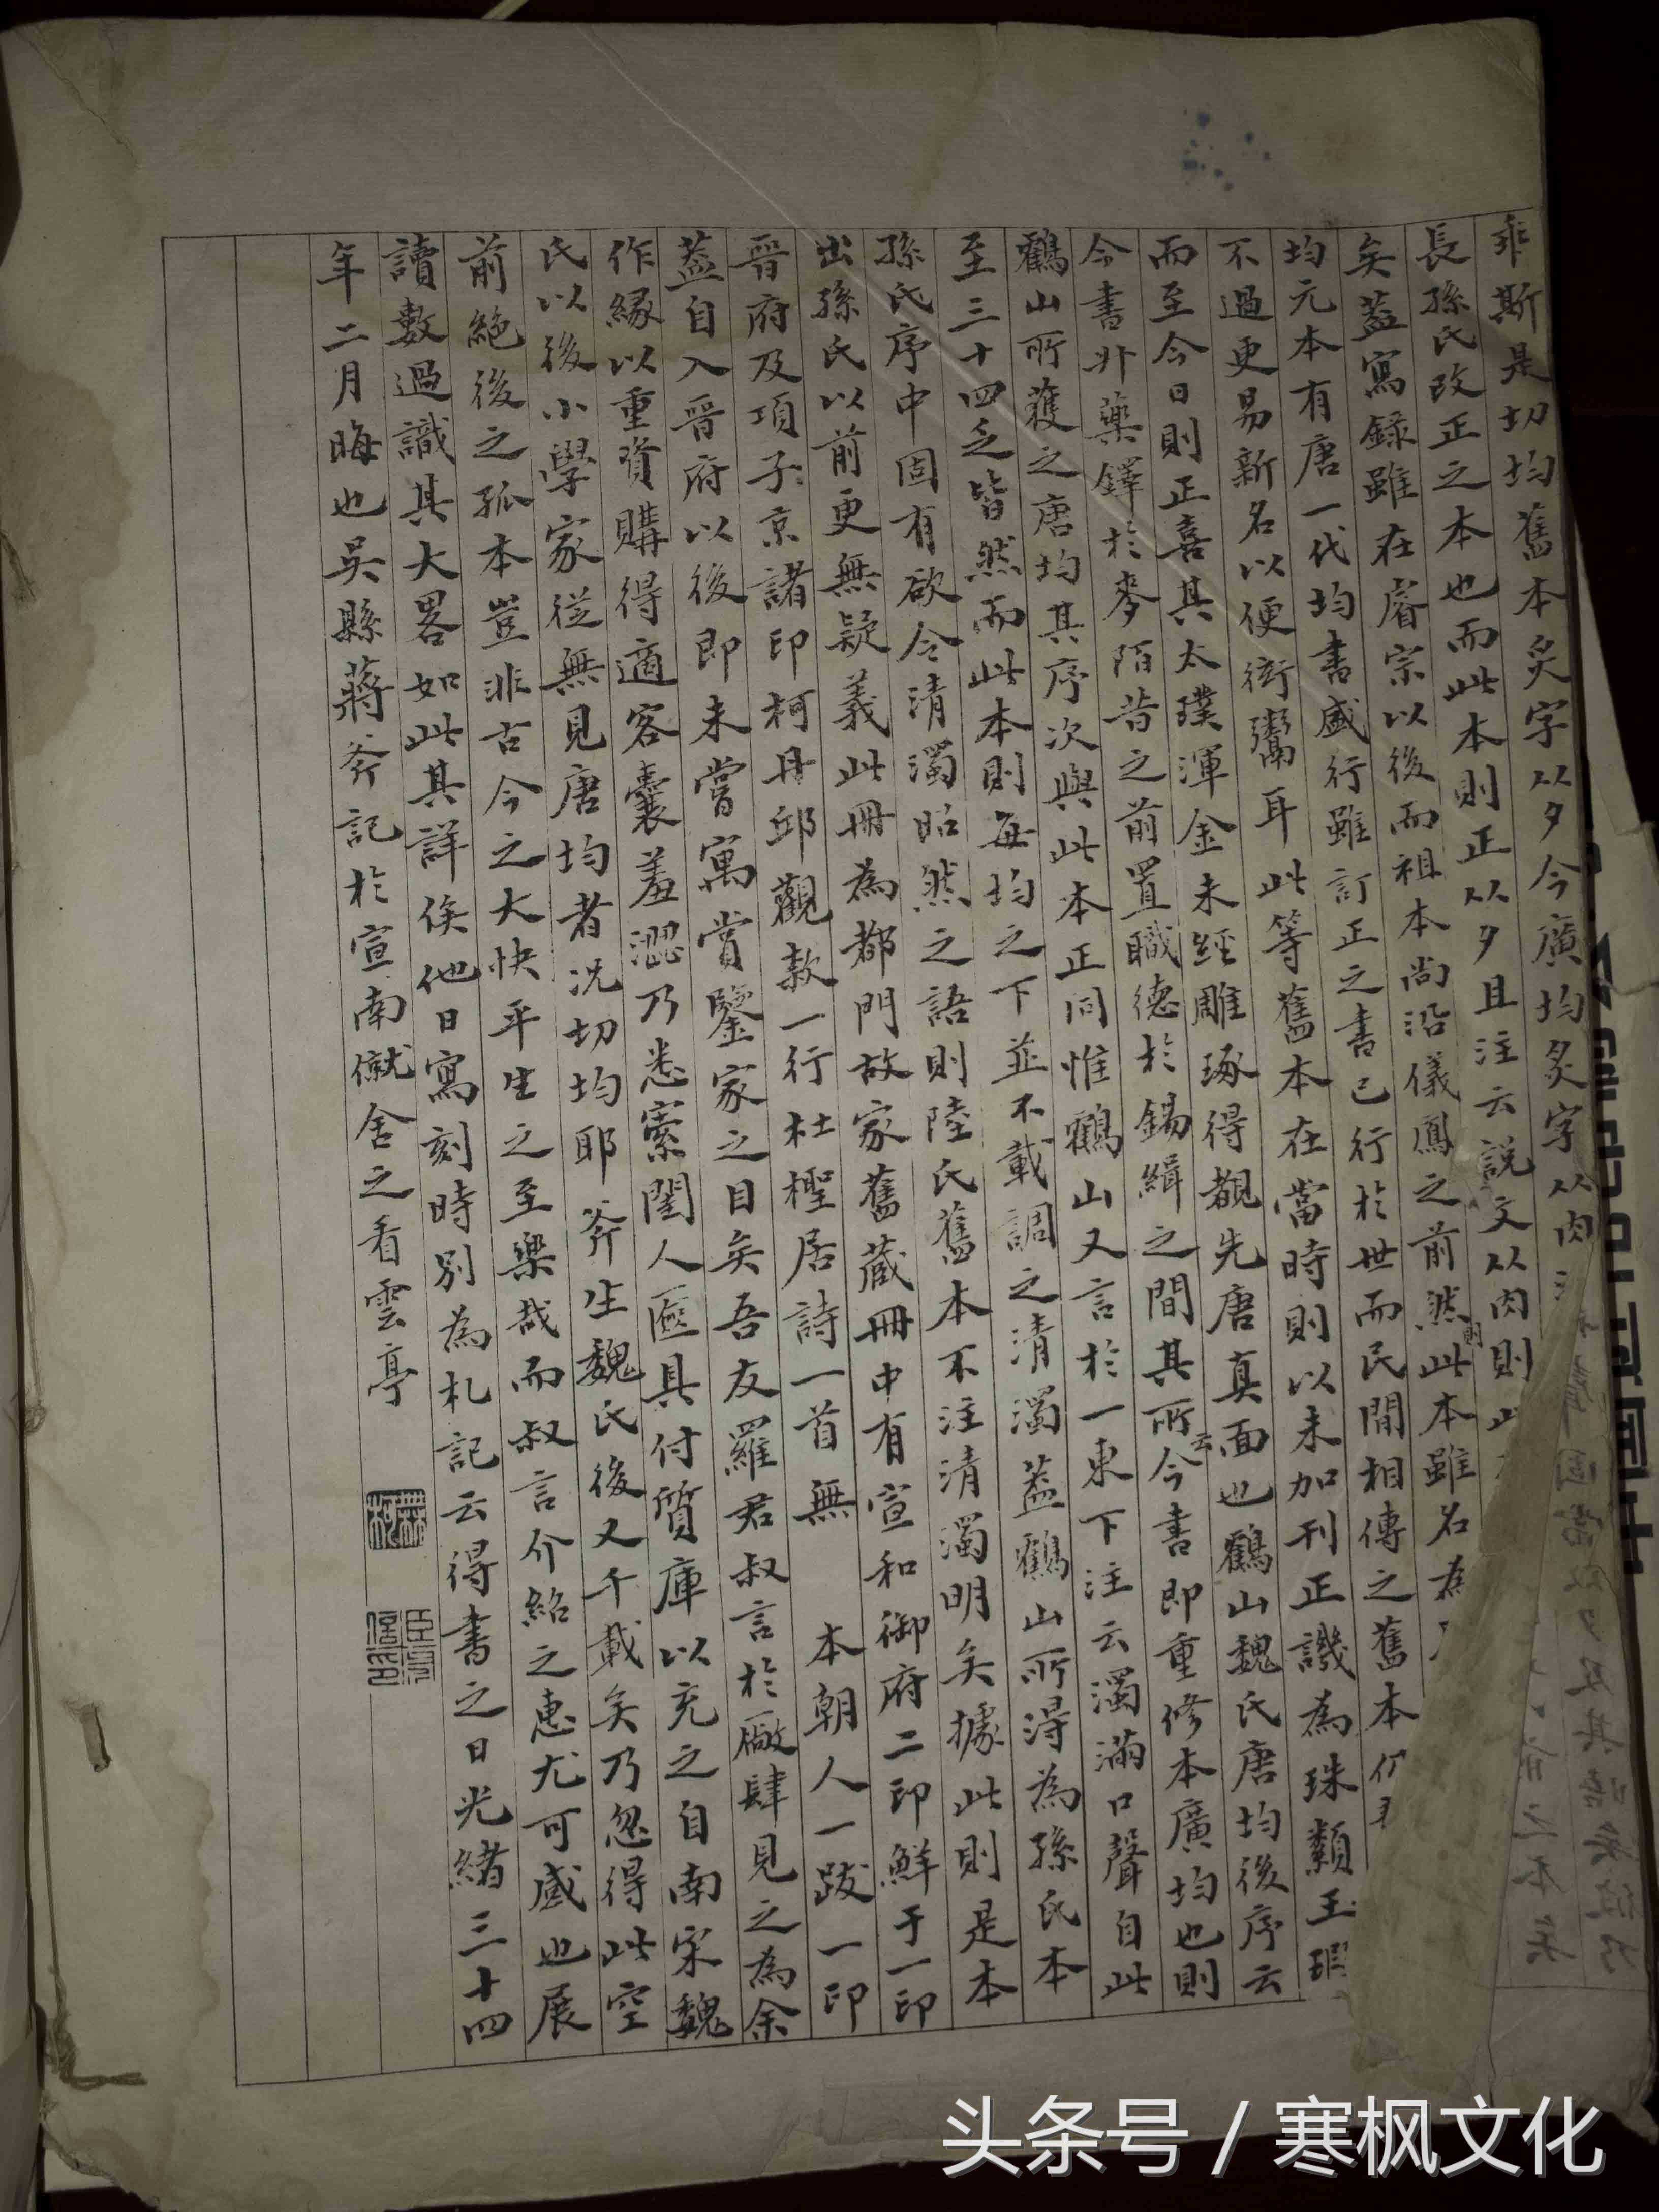 非斯是切均舊本炙字从夕今廣均炙字从肉
長孫氏改正之本也而此本則正从夕且注云説文从肉則
矣葢寫録雖在睿宗以後而祖本尚沿儀鳳之前然則此本雖名為
均元本有唐一代均書盛行雖訂正之書已行於世而民間相傳之舊本仍
不過更易新名以便衒鬻耳此等舊本在當時則以未加刊正譏為珠纇玉瑕
而至今日則正喜其太璞渾金未經雕琢得覩先唐真面也鶴山魏氏唐均後序云
今書升藥鐸於麥陌昔之前置職德於錫緝之間其所云今書即重修本廣均也則
鶴山所獲之唐均其序次與此本正同惟鶴山又言於一東下注云濁滿口聲自此
至三十四乏皆然而此本則每均之下並不載調之清濁葢鶴山所得為孫氏本
孫氏序中固有欲令清濁昭然之語則陸氏舊本不注清濁明矣據此則是本
出孫氏以前更無疑義此冊為都門故家舊蔵冊中有宣和御府二印鮮于一印
晋府及項子京諸印柯丹邱觀款一行杜檉居詩一首無 本朝人一跋一印
葢自入晋府以後即未嘗寓賞鑒家之目矣吾友羅君叔言於廠肆見之為余
作緣以重資購得適客囊羞澀乃悉索閨人匳具付質庫以充之自南宋魏
氏以後小學家從無見唐均者况切均耶斧生魏氏後又千載矣乃忽得此空
前絶後之孤本豈非古今之大快平生之至樂哉而叔言介紹之惠尤可感也展
讀數過識其大畧如此其詳俟他日寫刻時別為札記云得書之日光緒三十四
年二月晦也吳縣蔣斧記於宣南僦舍之看雲亭
头条号 / 寒枫文化